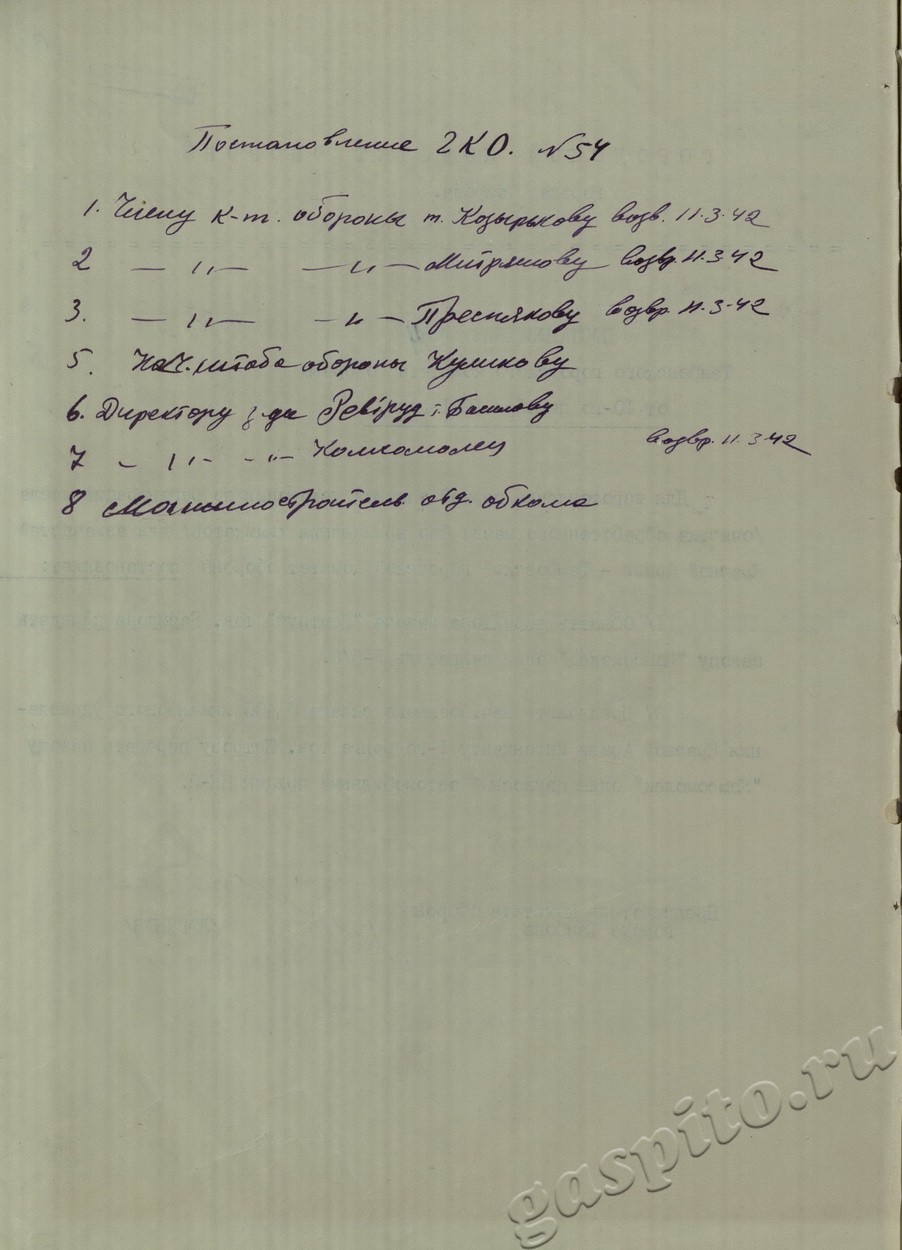 Постановление ГКО. № 54
1. Члену к-т. обороны т. Козырькову возв. 11.3.42
2 — " — — " — Митряшову возвр. 11.3.42
3. — " — — " — Преснякову возвр. 11.3.42
5. Нач. штаба обороны Куликову
6. Директору з-да Ревтруд т.
7 — " — — " — Комсомолец возвр. 11.3.42
8 Машиностроительн. отд. обкома
gaspito.ru